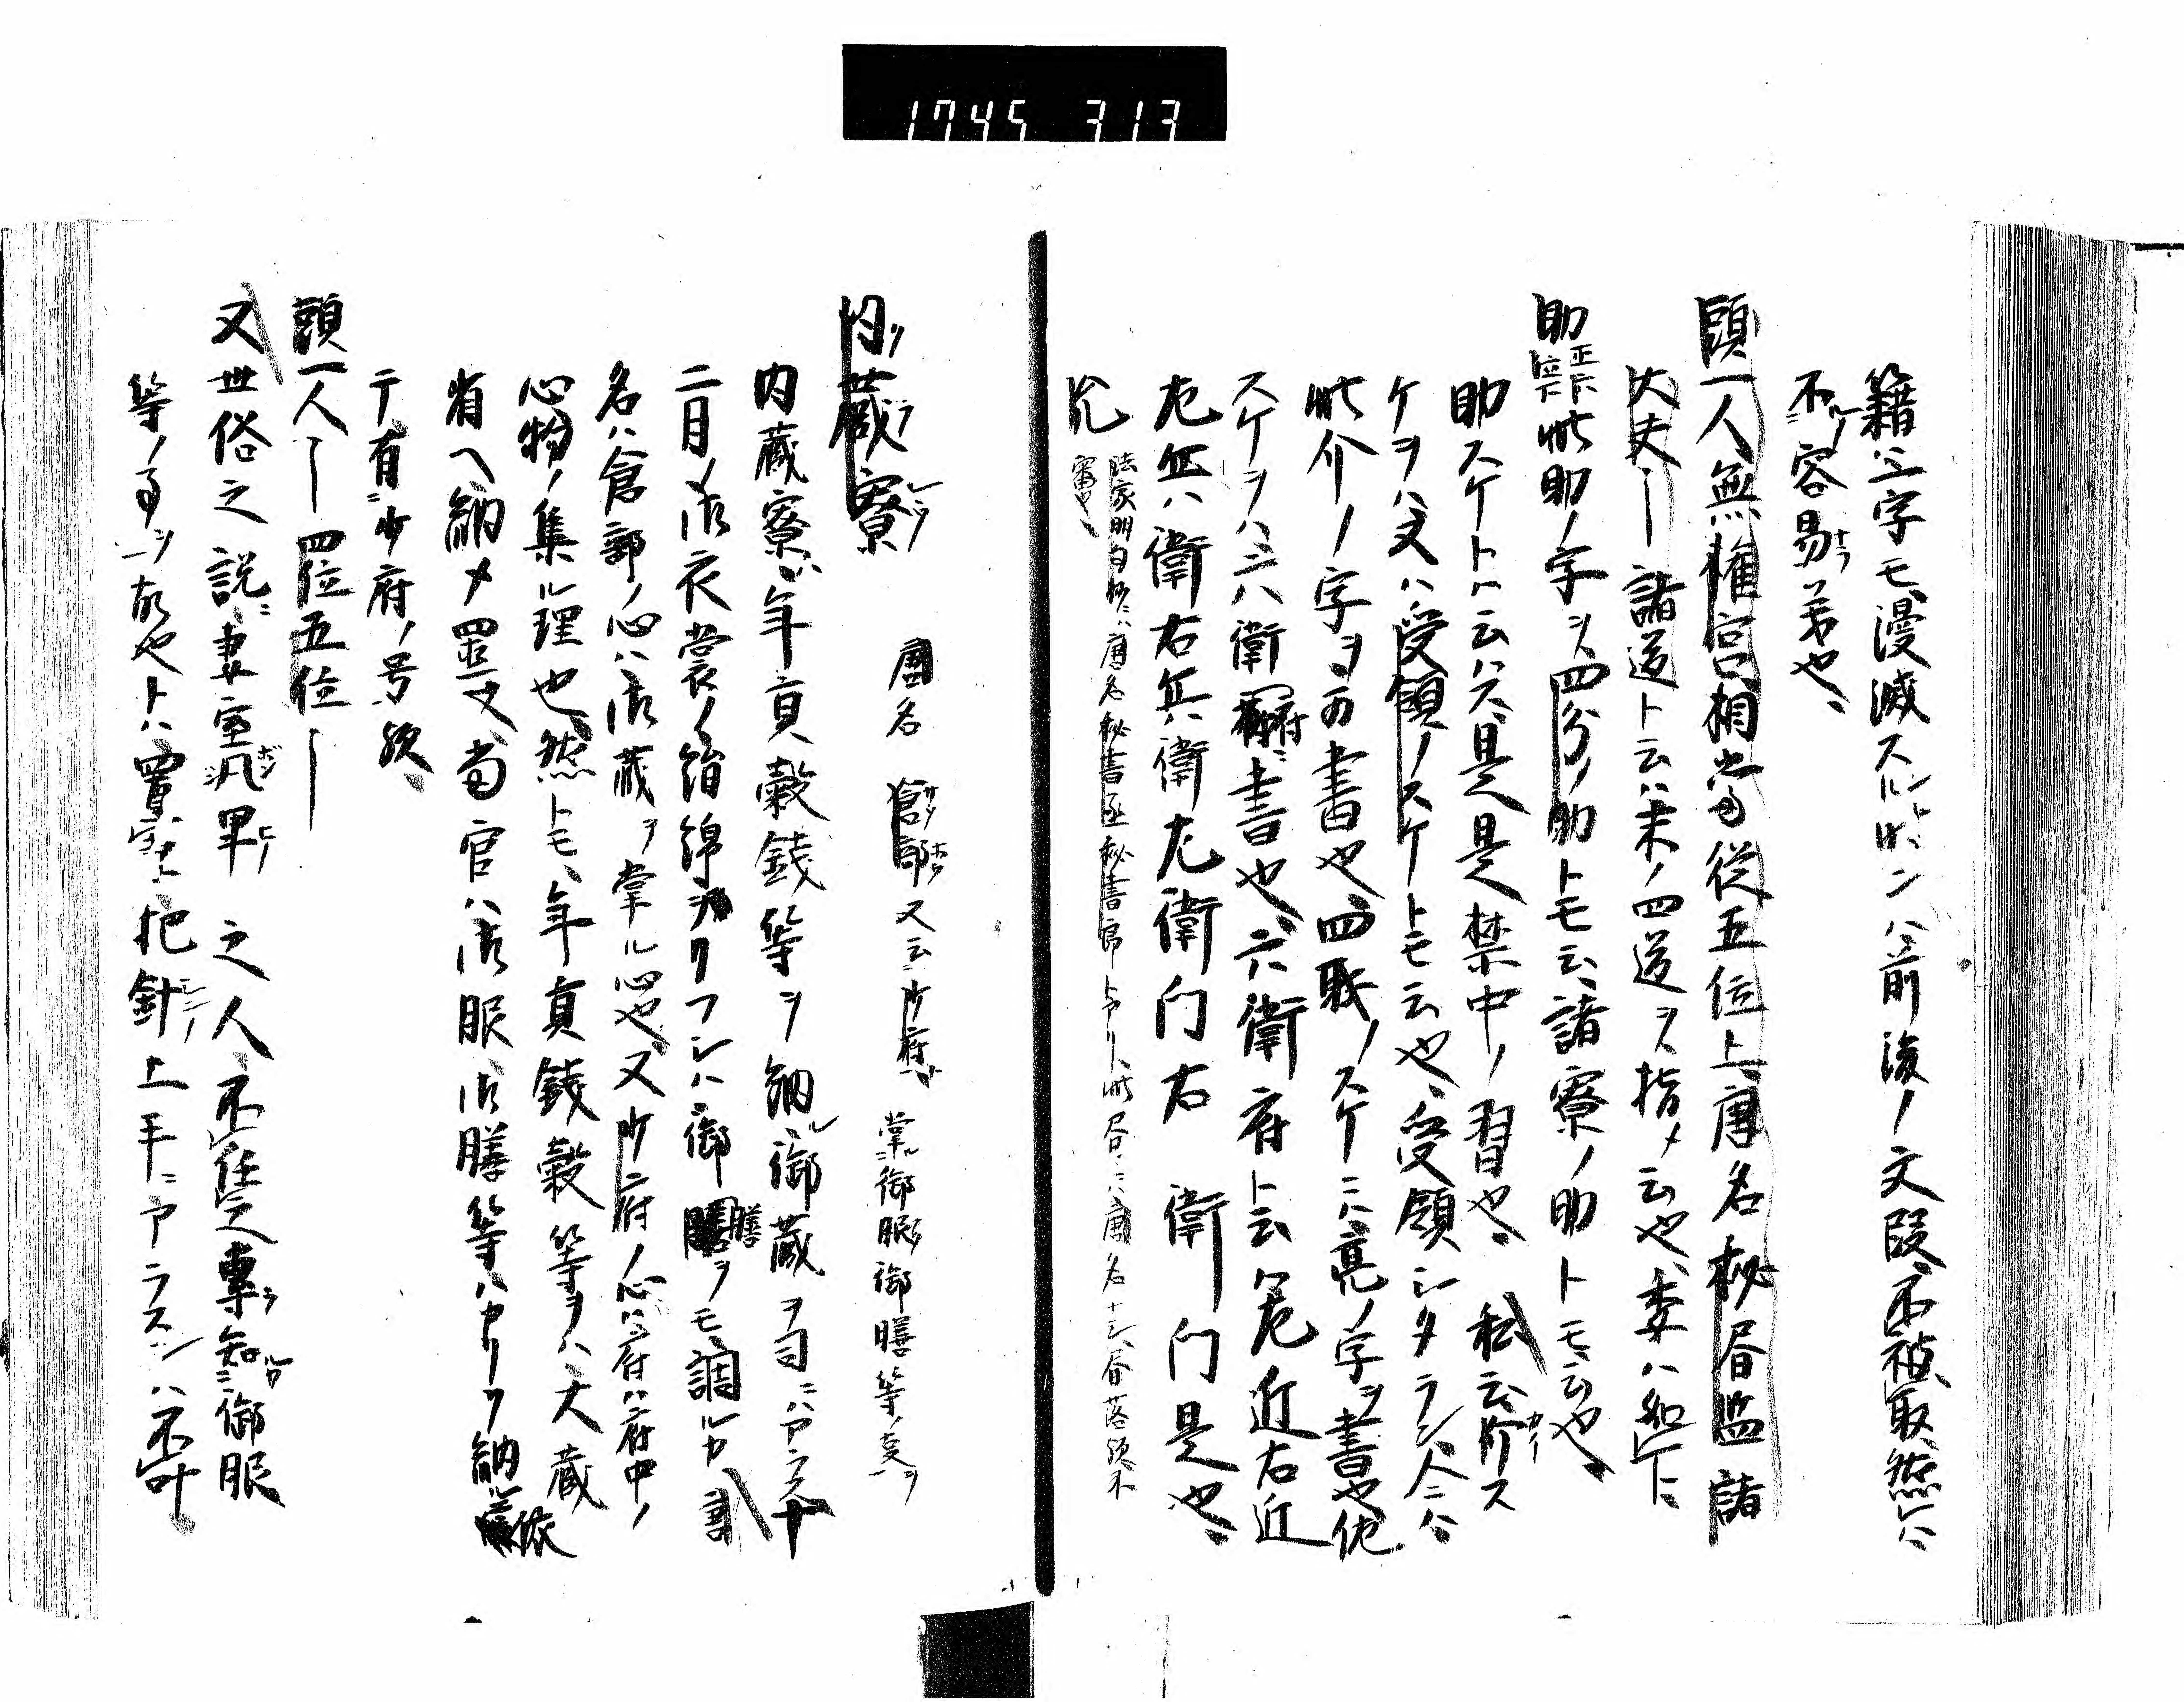 1745 313
籍ハ一字モ漫滅スル時ンハ前後ノ文段不被取然レハ
不容易ナラ義也、
頭一人無権官相当従五位上唐名秘書監諸
大夫ー諸道ト云ハ末ノ四道ヲ指メ云也、委ハ如下ニ
助 正六位下 此助ノ字ヲ四分ノ助トモ云、諸寮ノ助トモ云也、
助スケトハ云ハス是是禁中ノ習也、私云介スカイ
ケヲハ又ハ受領ノスケトモ云也、受領シタラン人ニハ
此介ノ字ヲ可書也、四職ノスケニハ亮ノ字ヲ書也他
スケヲハ六衛府ニ書也、六衛府ト云ハ左近右近
左兵衛右兵衛左衛門右衛門是也、
允 法家明白抄ニハ唐名秘書丞秘書郎トアリ、此本ニハ唐名十云落後不
審也、
内蔵寮 唐名 倉部 又云少府 掌ル御服御膳等ノ事ヲ
内蔵寮ハ年貢穀銭等ヲ納ル御蔵ヲ司ニハアラス十
二月ノ御衣裳ノ絹綿ヲ織リフシハ御膳ヲモ調ルカ
名ハ倉部ノ心ハ御蔵ヲ掌ル心也又少府ノ心ハ府ハ府中ノ
心物ノ集ル理也然トモ、年貢銭穀等ヲハ大蔵
省ヘ納メ置又、当官ハ御服御膳等ハカリヲ納ル依
テ有少府ノ号歟、
頭一人ー四位五位ー
又世俗之説ニ妻室凡卑之人不任之専知御服
等ノ事ヲ故也トハ妻室把針上手ニアラスンハ不叶